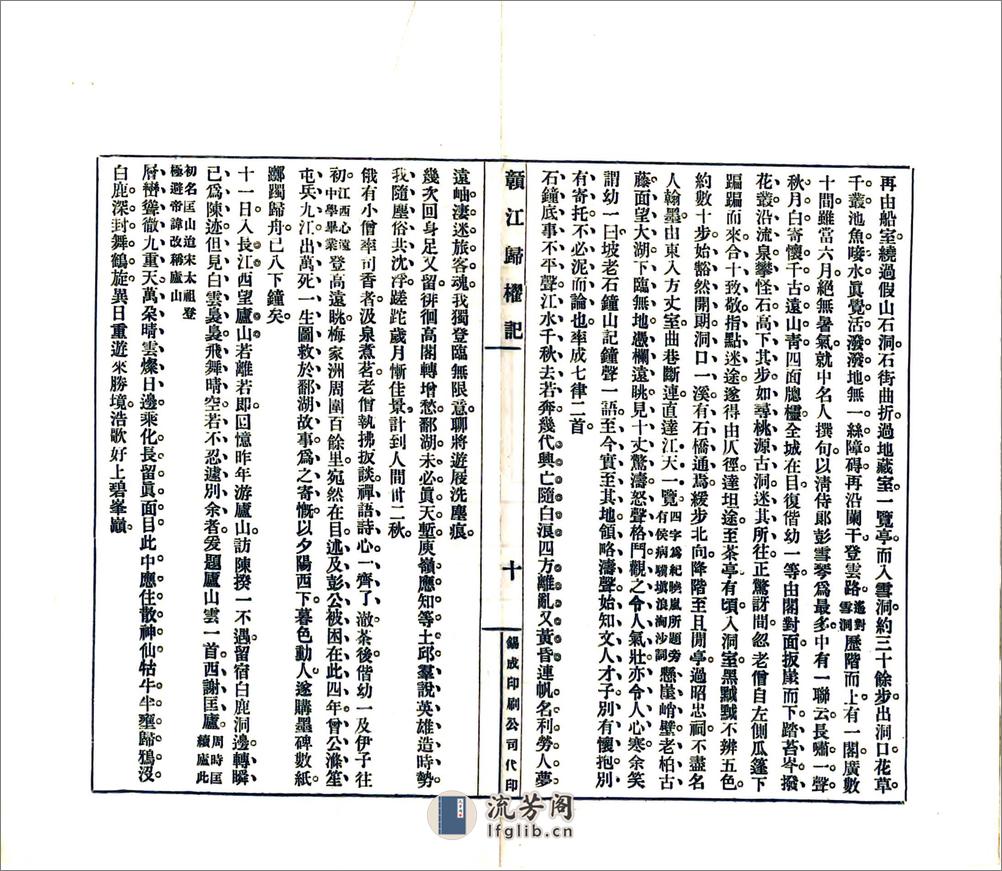 再由船室繞過假山石洞石街曲折過地藏室一覽亭而入雪洞約三十餘步出洞口花草
千叢池魚唼水眞覺活潑潑地無一絲障碍再沿闌干登雲路遙對雪洞歷階而上有一閣廣數
十間雖當六月絕無暑氣就中名人撰句以淸侍郞彭雪琴爲最多中有一聯云長嘯一聲
秋月白寄懷千古遠山靑四面牕櫺全城在目復偕幼一等由閣對面扳崖而下踏苔岑撥
花叢沿流泉攀怪石高下其步如尋桃源古洞迷其所往正驚訝間忽老僧自左側瓜篷下
蹁蹁而來合十致敬指點迷途遂得由仄徑達坦途至茶亭有頃入洞室黑黢黢不辨五色
約數十步始豁然開朗洞口一溪有石橋通焉緩步北向降階至且閒亭過昭忠祠不盡名
人翰墨由東入方丈室曲巷斷連直達江天一覽四字爲紀曉嵐所題旁有侯病驥塡浪淘沙詞懸崖峭壁老柏古
藤面望大湖下臨無地憑欄遠眺見十丈驚濤怒聲格鬥觀之令人氣壯亦令人心寒余笑
謂幼一曰坡老石鐘山記鐘聲一語至今實至其地領略濤聲始知文人才子別有懷抱別
有寄托不必泥而論也率成七律二首
石鐘底事不平聲江水千秋去若奔幾代興亡隨白浪四方離亂又黃昏連帆名利勞人夢
贛江歸櫂記
十
錫成印刷公司代印
遠岫淒迷旅客魂我獨登臨無限意聊將遊屐洗塵痕
幾次回身足又留徘徊高閣轉增愁鄱湖未必眞天塹庾嶺應知等土邱羣說英雄造時勢
我隨塵俗共沈浮蹉跎歲月慚佳景計到人間卅二秋
俄有小僧率司香者汲泉煮茗老僧執拂扳談禪語詩心一齊了澈茶後偕幼一及伊子往
初江西心遠中學畢業登高遠眺梅家洲周圍百餘里宛然在目述及彭公被困在此四年曾公滌笙
屯兵九江出萬死一生圖救於鄱湖故事爲之寄慨以夕陽西下暮色動人遂購墨碑數紙
躑躅歸舟已八下鐘矣
十一日入長江西望廬山若離若即回憶昨年游廬山訪陳撥一不遇留宿白鹿洞邊轉瞬
已爲陳迹但見白雲裊裊飛舞晴空若不忍遽別余者爰題廬山雲一首西謝匡廬周時匡續廬此
初名匡山迨宋太祖登極避帝諱改稱廬山
層巒聳徹九重天萬朵晴雲燦日邊乘化長留眞面目此中應住散神仙牯牛半壅歸鴉沒
白鹿深封舞鶴旋異日重遊來勝境浩歌好上碧峯巔
流芳阁
lfglib.cn